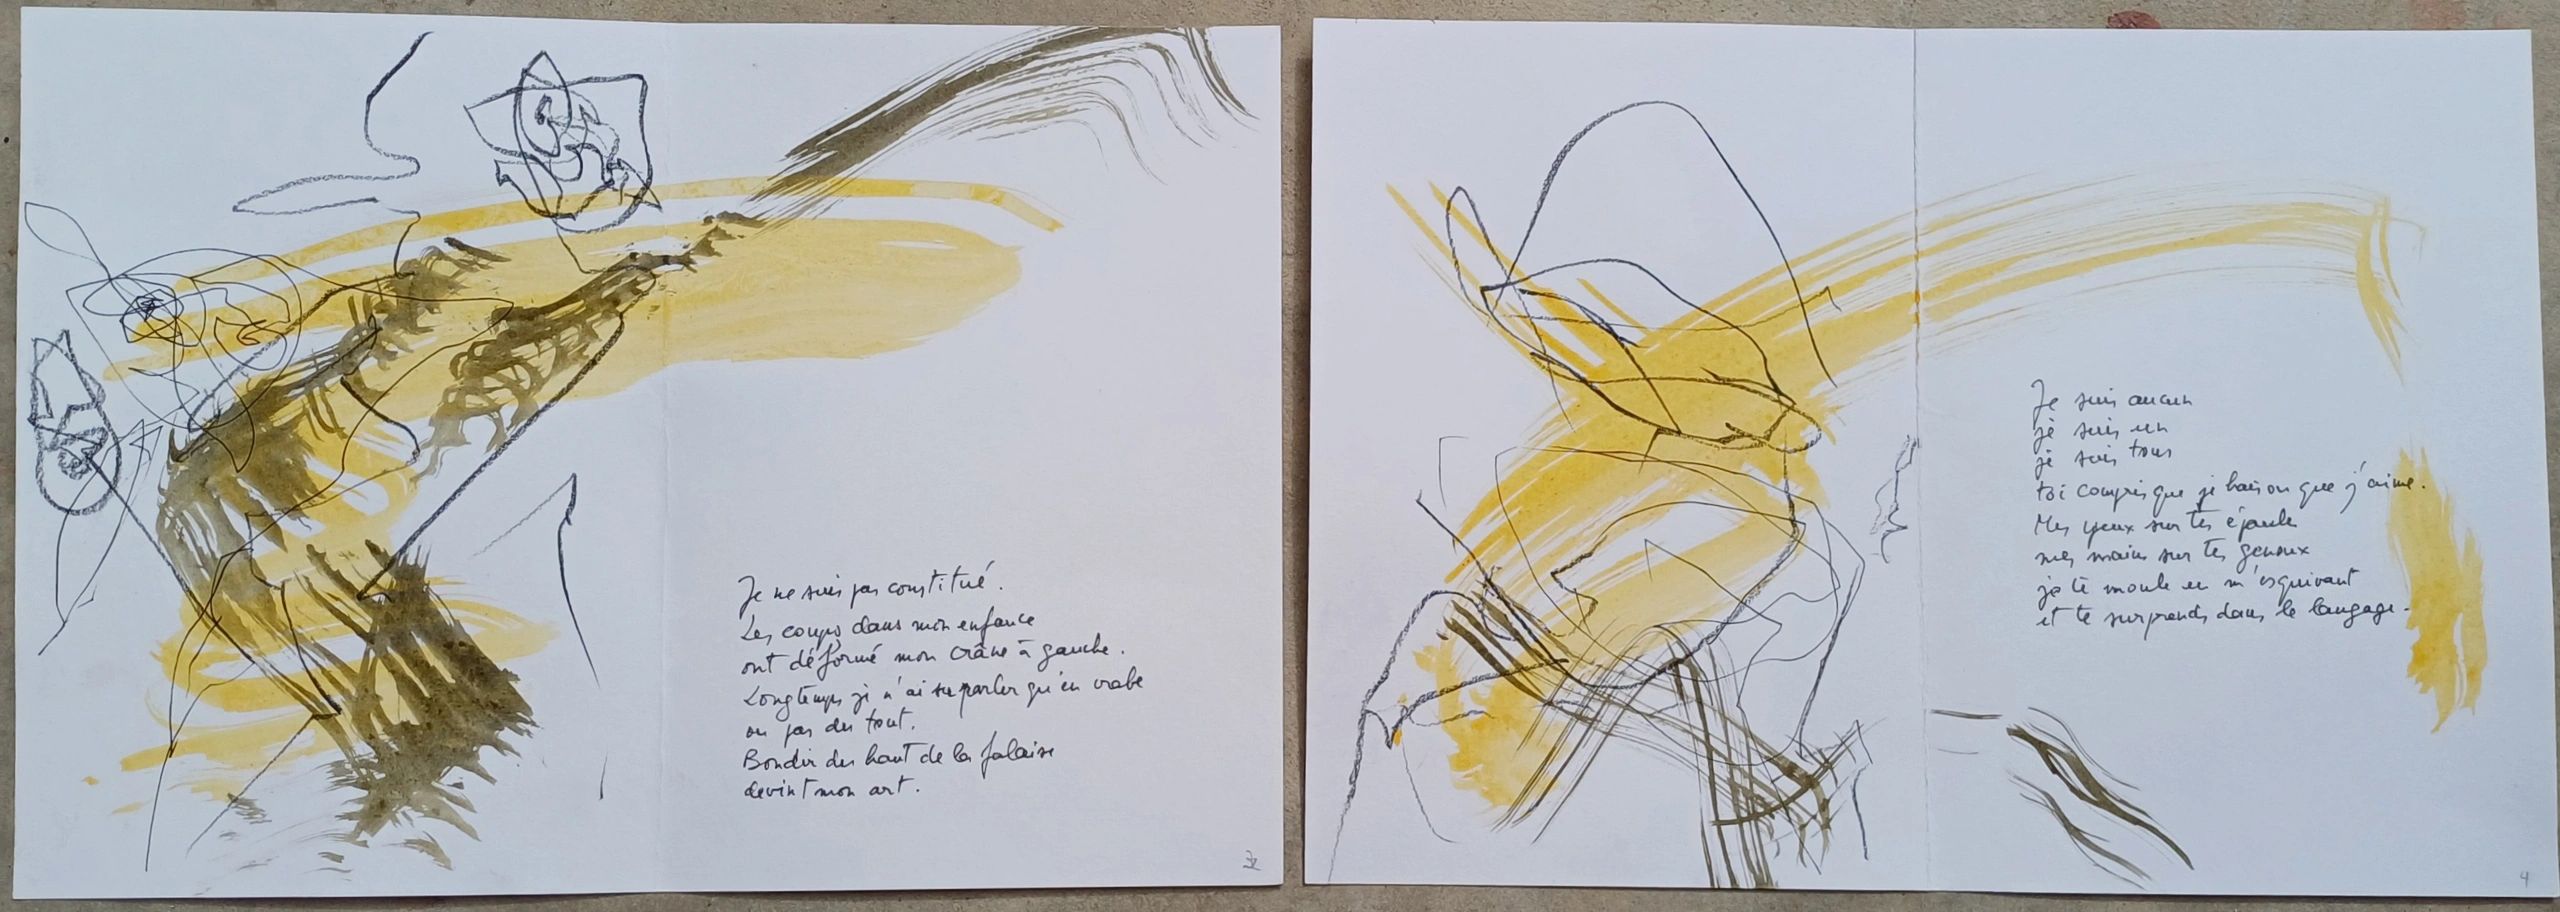 Je ne suis pas constitué.
Les coups dans mon enfance
ont déformé mon crâne à gauche.
Longtemps je n'ai su parler qu'en crabe
ou pas du tout.
Bondir du haut de la falaise
devint mon art.
Je suis aucun
je suis un
je suis tous
toi compris que je hais ou que j'aime.
Mes yeux sur tes épaules
mes mains sur tes genoux
je te moule en m'esquivant
et te surprends dans le langage.
4